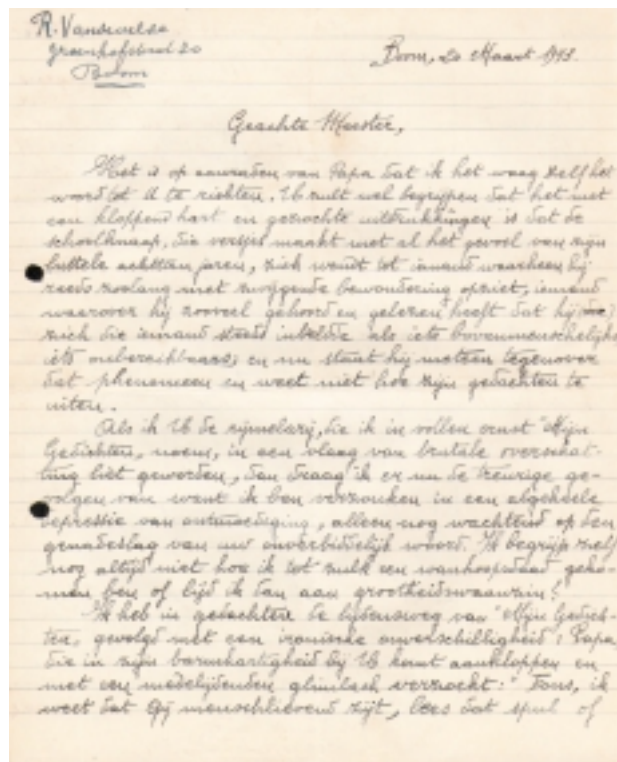 R. Vandevelde
Groenhofstraat 20
Boom
Boom, 20 Maart 1943.
Geachte Meester,
Het is op aanraden van Papa dat ik het waag zelf het
woord tot U te richten. U zult wel begrijpen dat het met
een kloppend hart en gezochte uitdrukkingen is dat de
schoolknaap, die versjes maakt met al het gevoel van zijn
luttele achttien jaren, zich wendt tot iemand waarheen hij
reeds zoolang met zwijgende bewondering opziet, iemand
waarover hij zooveel gehoord en gelezen heeft dat hij
zich die iemand steeds inbeeldde als iets bovenmenschelijks
iets onbereikbaars; en nu staat hij meteen tegenover
dat phenomeen en weet niet hoe zijn gedachten te
uiten.
Als ik U de rijmelarij, die ik in vollen ernst "Mijn
Gedichten, noem, in een vlaag van brutale overschat-
ting liet geworden, dan draag ik er nu de treurige ge-
volgen van want ik ben verzonken in een algeheele
depressie van ontmoediging, alleen nog wachtend op den
genadeslag van uw onverbiddelijk woord. Ik begrijp zelf
nog altijd niet hoe ik tot zulk een wanhoopsdaad geko-
men ben of lijd ik dan aan grootheidswaanzin?
Ik heb in gedachten de lijdensweg van "Mijn Gedich-
ten, gevolgd met een ironische onverschilligheid: Papa,
die in zijn barmhartigheid bij U komt aankloppen en
met een medelijdenden glimlach verzoekt: "Fons, ik
weet dat Gij menschlievend zijt, lees dat spul of